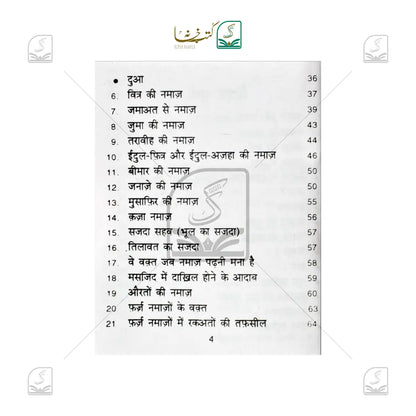 • दुआ 36
6. वित्र की नमाज़ 37
7. जमाअत से नमाज़ 39
8 जुमा की नमाज़ 43
9. तरावीह की नमाज़ 44
10 ईदुल-फ़ित्र और ईदुल-अज़हा की नमाज़ 46
11. बीमार की नमाज़ 50
12. जनाज़े की नमाज़ 50
13. मुसाफ़िर की नमाज़ 55
14. क़ज़ा नमाज़ 56
15. सजदा सहव (भूल का सजदा) 57
16. तिलावत का सजदा 57
17. वे वक़्त जब नमाज़ पढ़नी मना है 58
18. मसजिद में दाख़िल होने के आदाब 59
19 औरतों की नमाज़ 60
20 फ़र्ज़ नमाज़ों के वक़्त 63
21 फ़र्ज़ नमाज़ों में रकअतों की तफ़सील 64
4